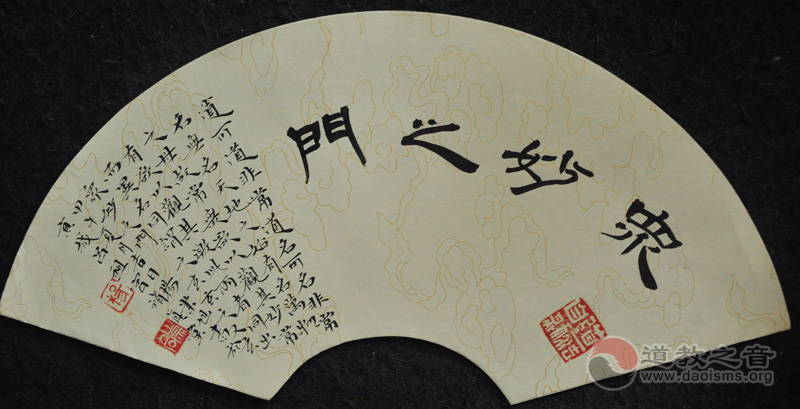 眾妙之門
道可道非常道名可名非常
名無名天地之始有名萬物
之母故常無欲以觀其妙常
有欲以觀其徼此兩者同出
而異名同謂之玄玄之又玄
眾妙之門
道教之音
www.daoisms.org